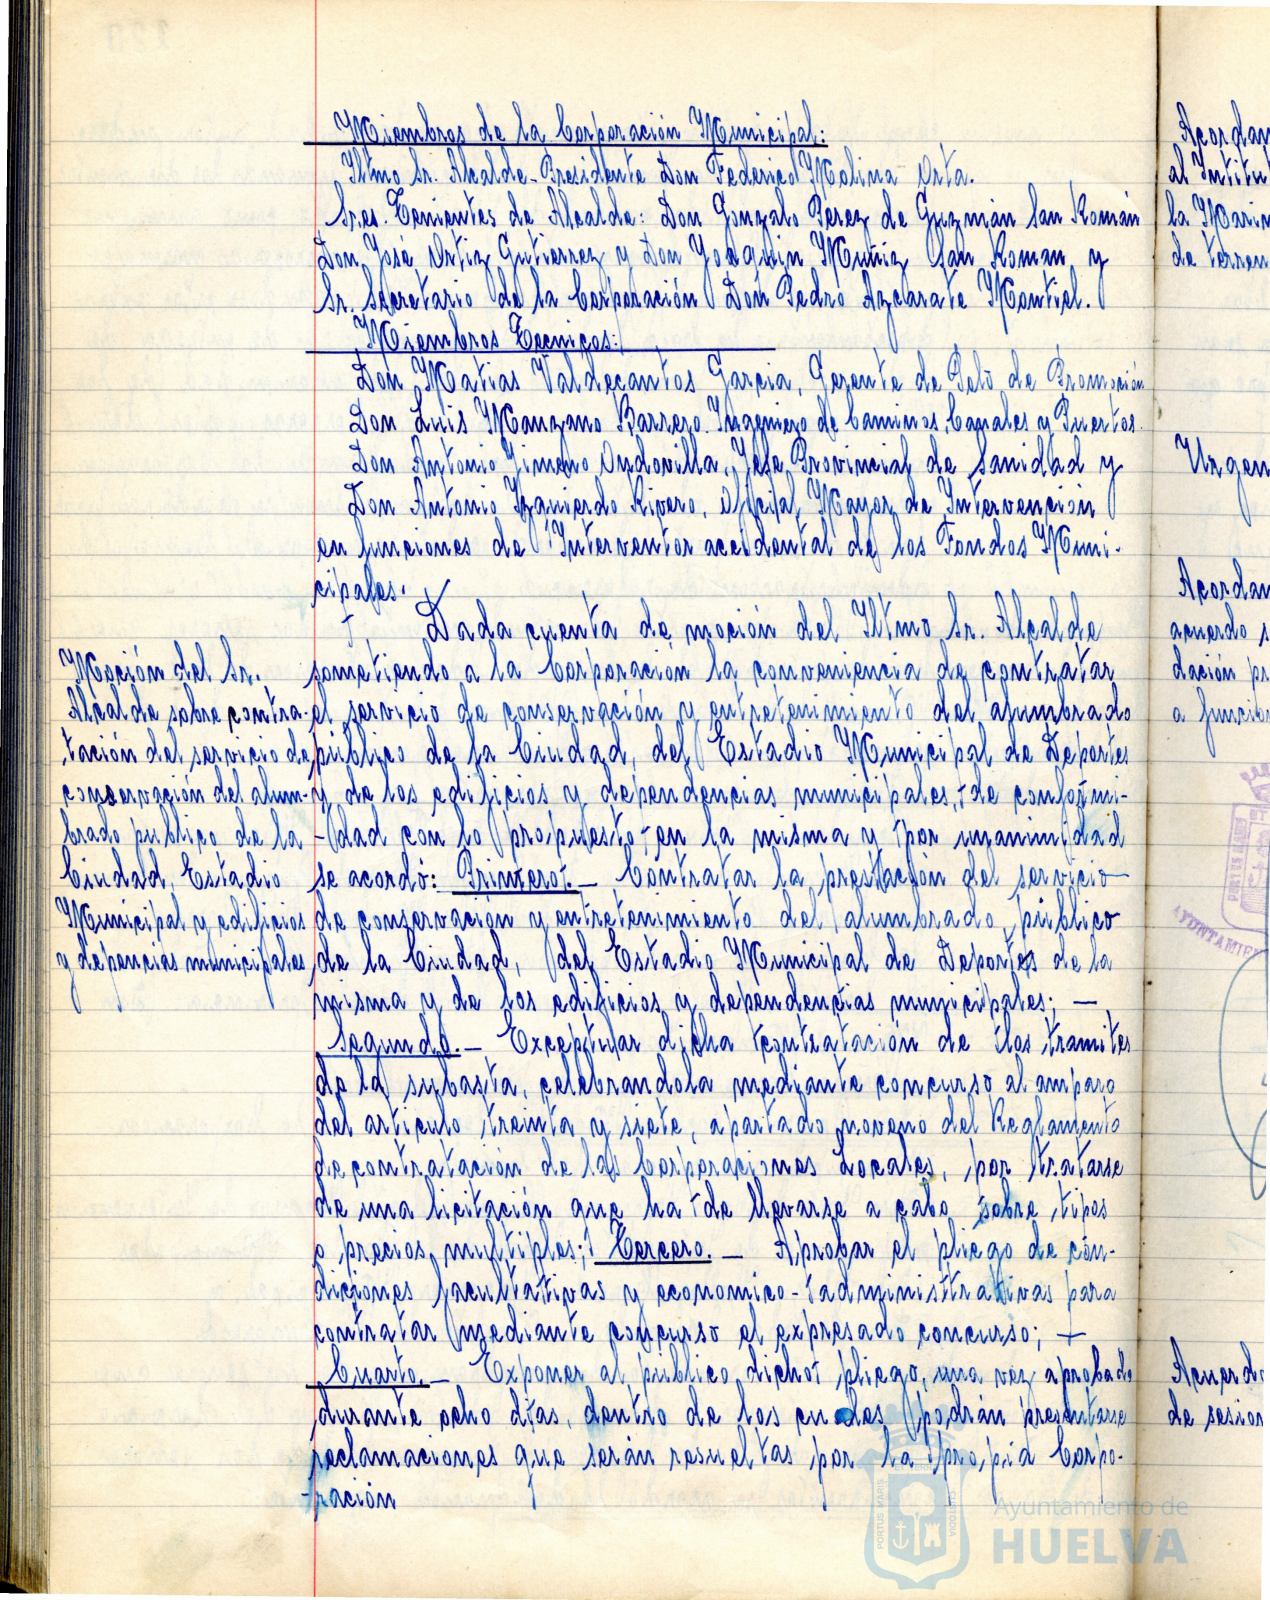 Miembros de la Corporación Municipal:
Iltmo Sr. Alcalde-Presidente Don Federico Molina Orta.
Sres. Tenientes de Alcalde: Don Gonzalo Pérez de Guzmán San Román
Don José Ortiz Gutierrez y Don Joaquin Muñiz San Roman y
Sr. Secretario de la Corporación Don Pedro Azcarate Montiel.
Miembros Tecnicos:
Don Matias Valdecantos Garcia, Gerente de Polo de Promoción
Don Luis Manzano Barrero. Ingeniero de Caminos, Canales y Puertos.
Don Antonio Jimeno Ondovilla, Jefe Provincial de Sanidad y
Don Antonio Izquierdo Rivero, Oficial Mayor de Intervención
en funciones de Interventor accidental de los Fondos Muni-
cipales.
Dada cuenta de moción del Iltmo Sr. Alcalde
sometiendo a la Corporación la conveniencia de contratar
el servicio de conservación y entretenimiento del alumbrado
público de la Ciudad, del Estadio Municipal de Deportes
y de los edificios y dependencias municipales, de conformi-
-dad con lo propuesto en la misma y por unanimidad
se acordó: Primero.- Contratar la prestación del servicio
de conservación y entretenimiento del alumbrado público
de la Ciudad, del Estadio Municipal de Deportes de la
misma y de los edificios y dependencias municipales; —
Segundo.- Exceptuar dicha contratación de los tramites
de la subasta, celebrandola mediante concurso al amparo
del articulo treinta y siete, apartado noveno del Reglamento
de contratación de las Corporaciones Locales, por tratarse
de una licitación que ha de llevarse a cabo sobre tipos
o precios multiples; Tercero. — Aprobar el pliego de con-
diciones facultativas y economico-administrativas para
contratar mediante concurso el expresado concurso; —
Cuarto.- Exponer al público dicho pliego, una vez aprobado
durante ocho dias, dentro de los cuales podrán presentarse
reclamaciones que serán resueltas por la propia Corpo-
-ración
Moción del Sr.
Alcalde sobre contra-
tación del servicio de
conservación del alum-
brado publico de la
Ciudad, Estadio
Municipal y edificios
y depencias municipales
Acordan
al Institu
la Marin
de terren
Urgen
Acordan
acuerdo s
dación pr
a funcion
PORTUS MARIS
AYUNTAMIE
Acuerdo
de sesion
PORTUS MARIS
CUSTODIA
Ayuntamiento de
HUELVA